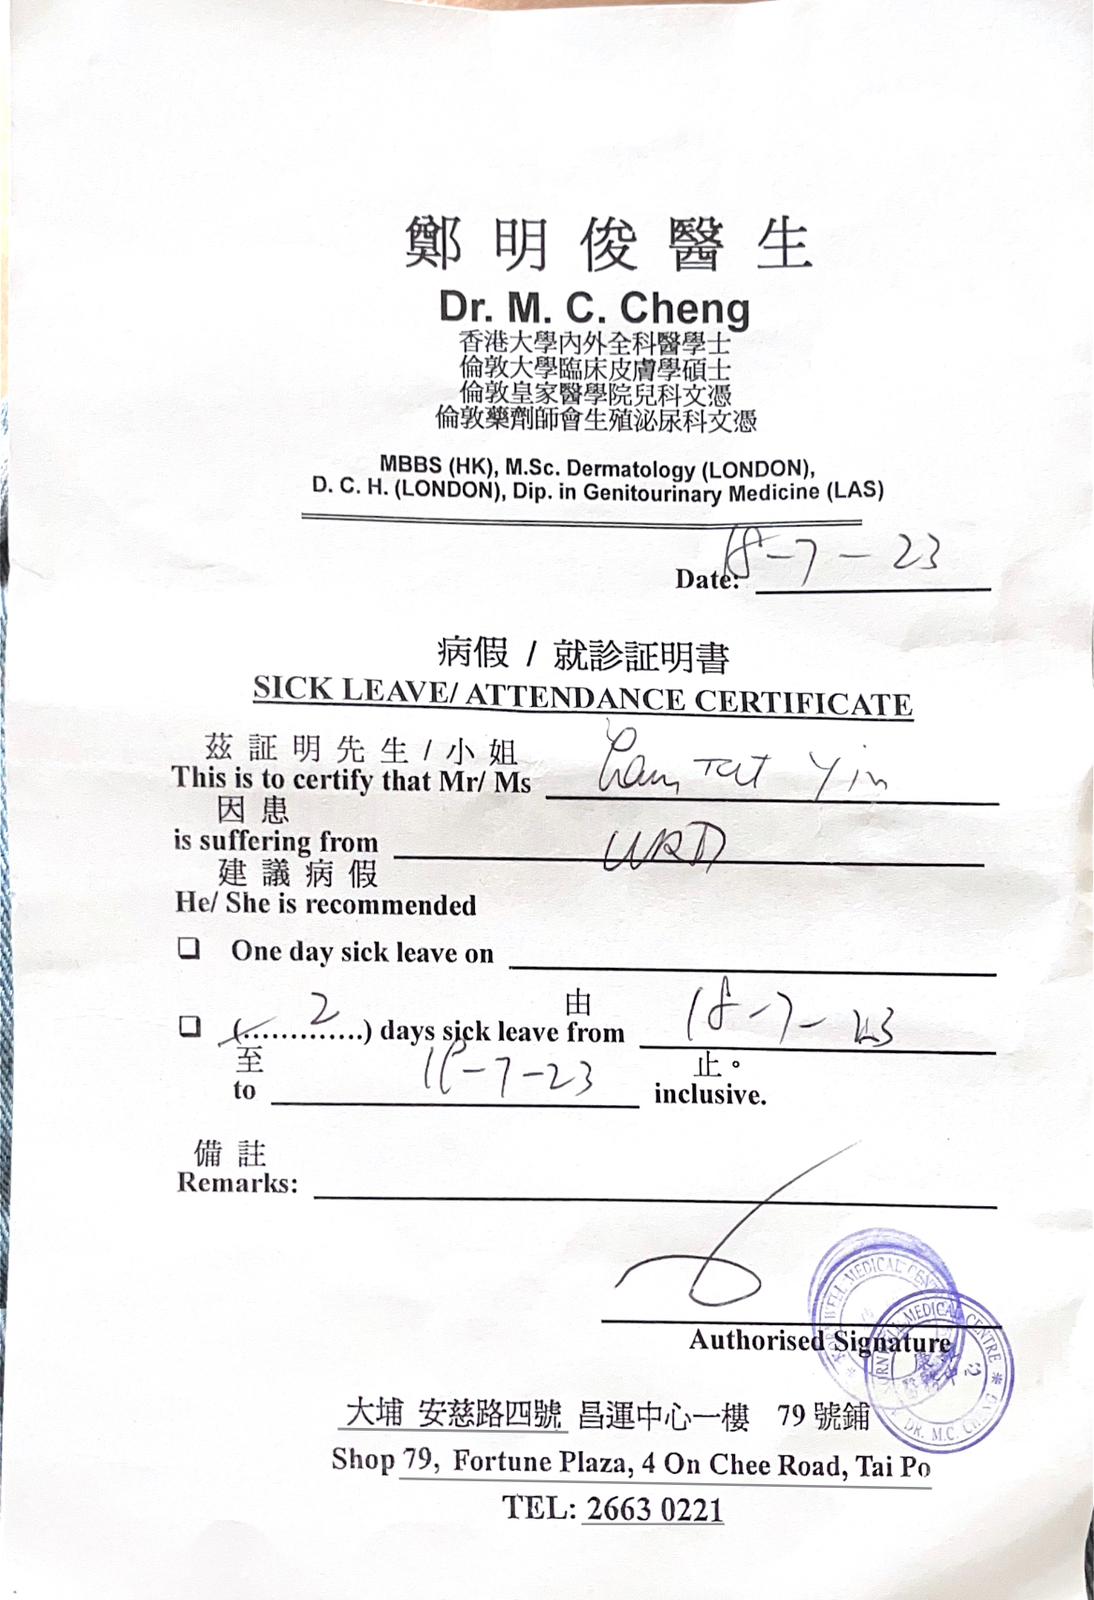 鄭明俊醫生
Dr. M. C. Cheng
香港大學內外全科醫學士
倫敦大學臨床皮膚學碩士
倫敦皇家醫學院兒科文憑
倫敦藥劑師會生殖泌尿科文憑
MBBS (HK), M.Sc. Dermatology (LONDON),
D. C. H. (LONDON), Dip. in Genitourinary Medicine (LAS)
Date: 18-7-23
病假 / 就診証明書
SICK LEAVE/ ATTENDANCE CERTIFICATE
茲証明先生/小姐
This is to certify that Mr/ Ms Tat Yin
因患
is suffering from
建議病假
He/ She is recommended
❏ One day sick leave on
由
❏ (......2......) days sick leave from 18-7-23
至 止。
to -7-23 inclusive.
備註
Remarks:
Authorised Signature
MEDICAL CENTRE
MEDICAL CENTRE
DR. M.C. CHENG
大埔 安慈路四號 昌運中心一樓 79 號鋪
Shop 79, Fortune Plaza, 4 On Chee Road, Tai Po
TEL: 2663 0221